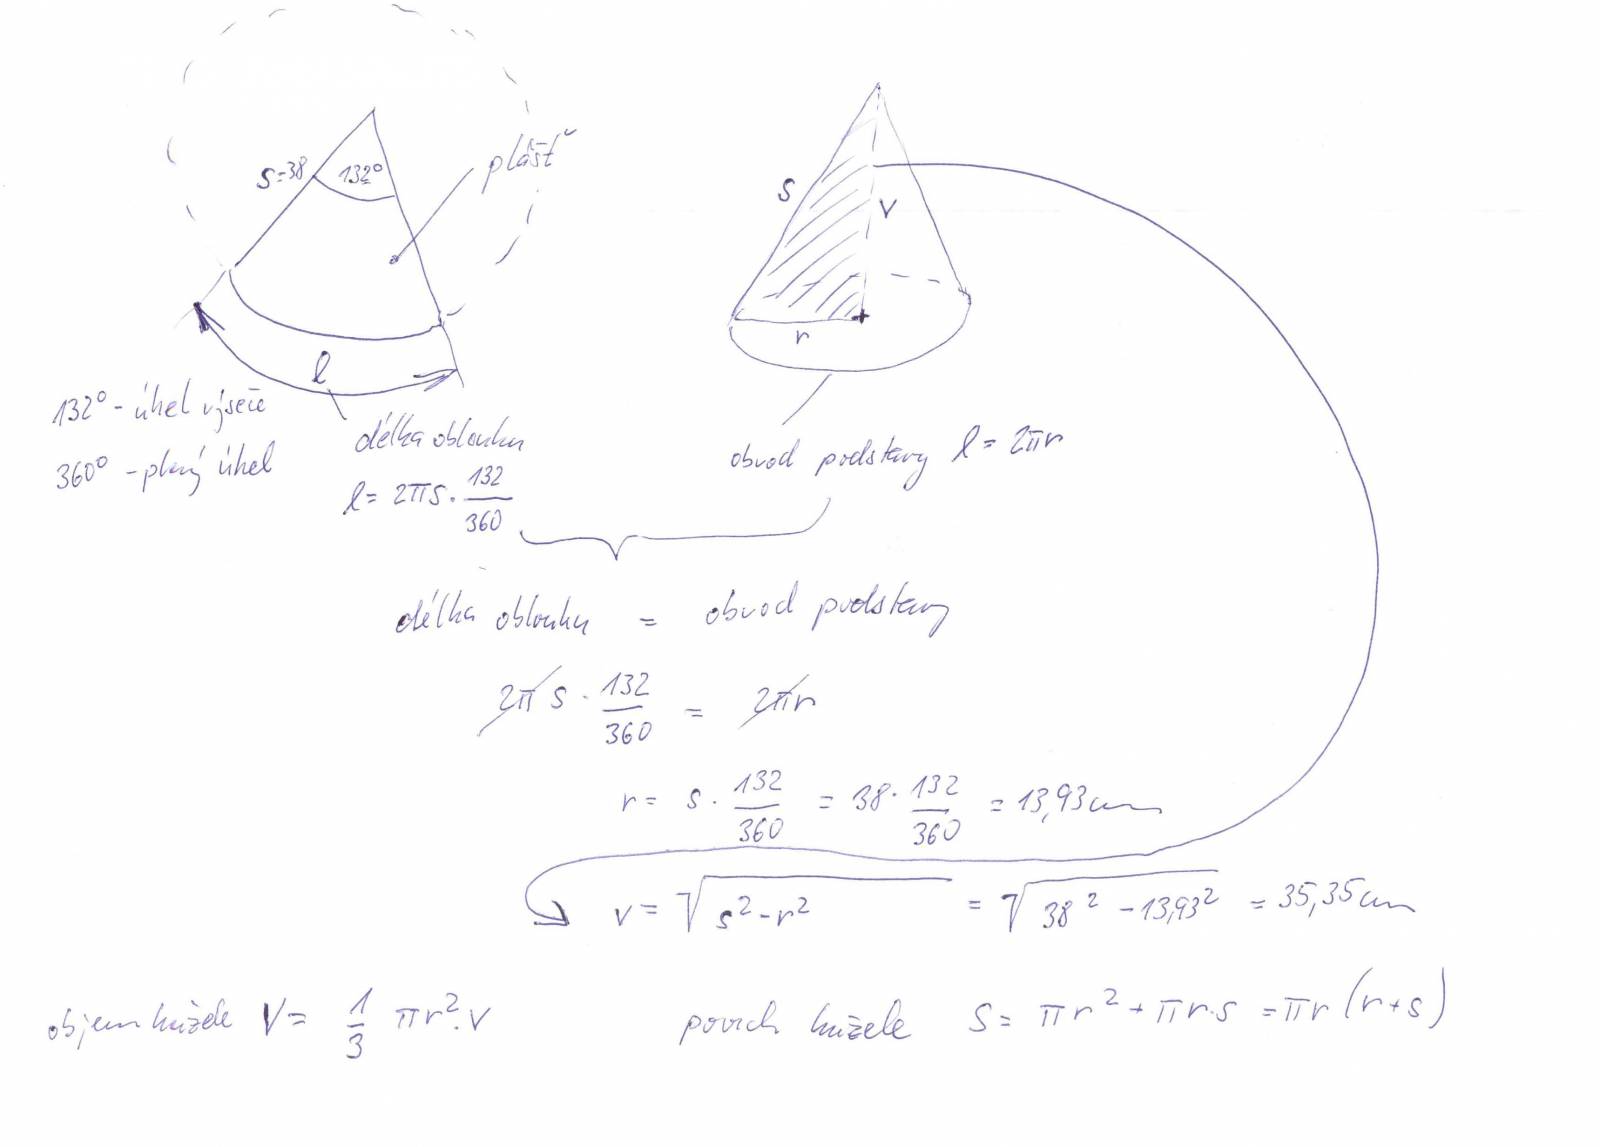 s=38
132°
plášť
l
s
v
r
132° - úhel výseče
360° - plný úhel
délka oblouku
l = 2πs · 132/360
obvod podstavy l = 2πr
délka oblouku = obvod podstavy
2π s · 132/360 = 2πr
r = s · 132/360 = 38 · 132/360 = 13,93 cm
v = √s² - r² = √38² - 13,93² = 35,35 cm
objem kužele V = 1/3 πr² · v
povrch kužele S = πr² + πr·s = πr (r+s)